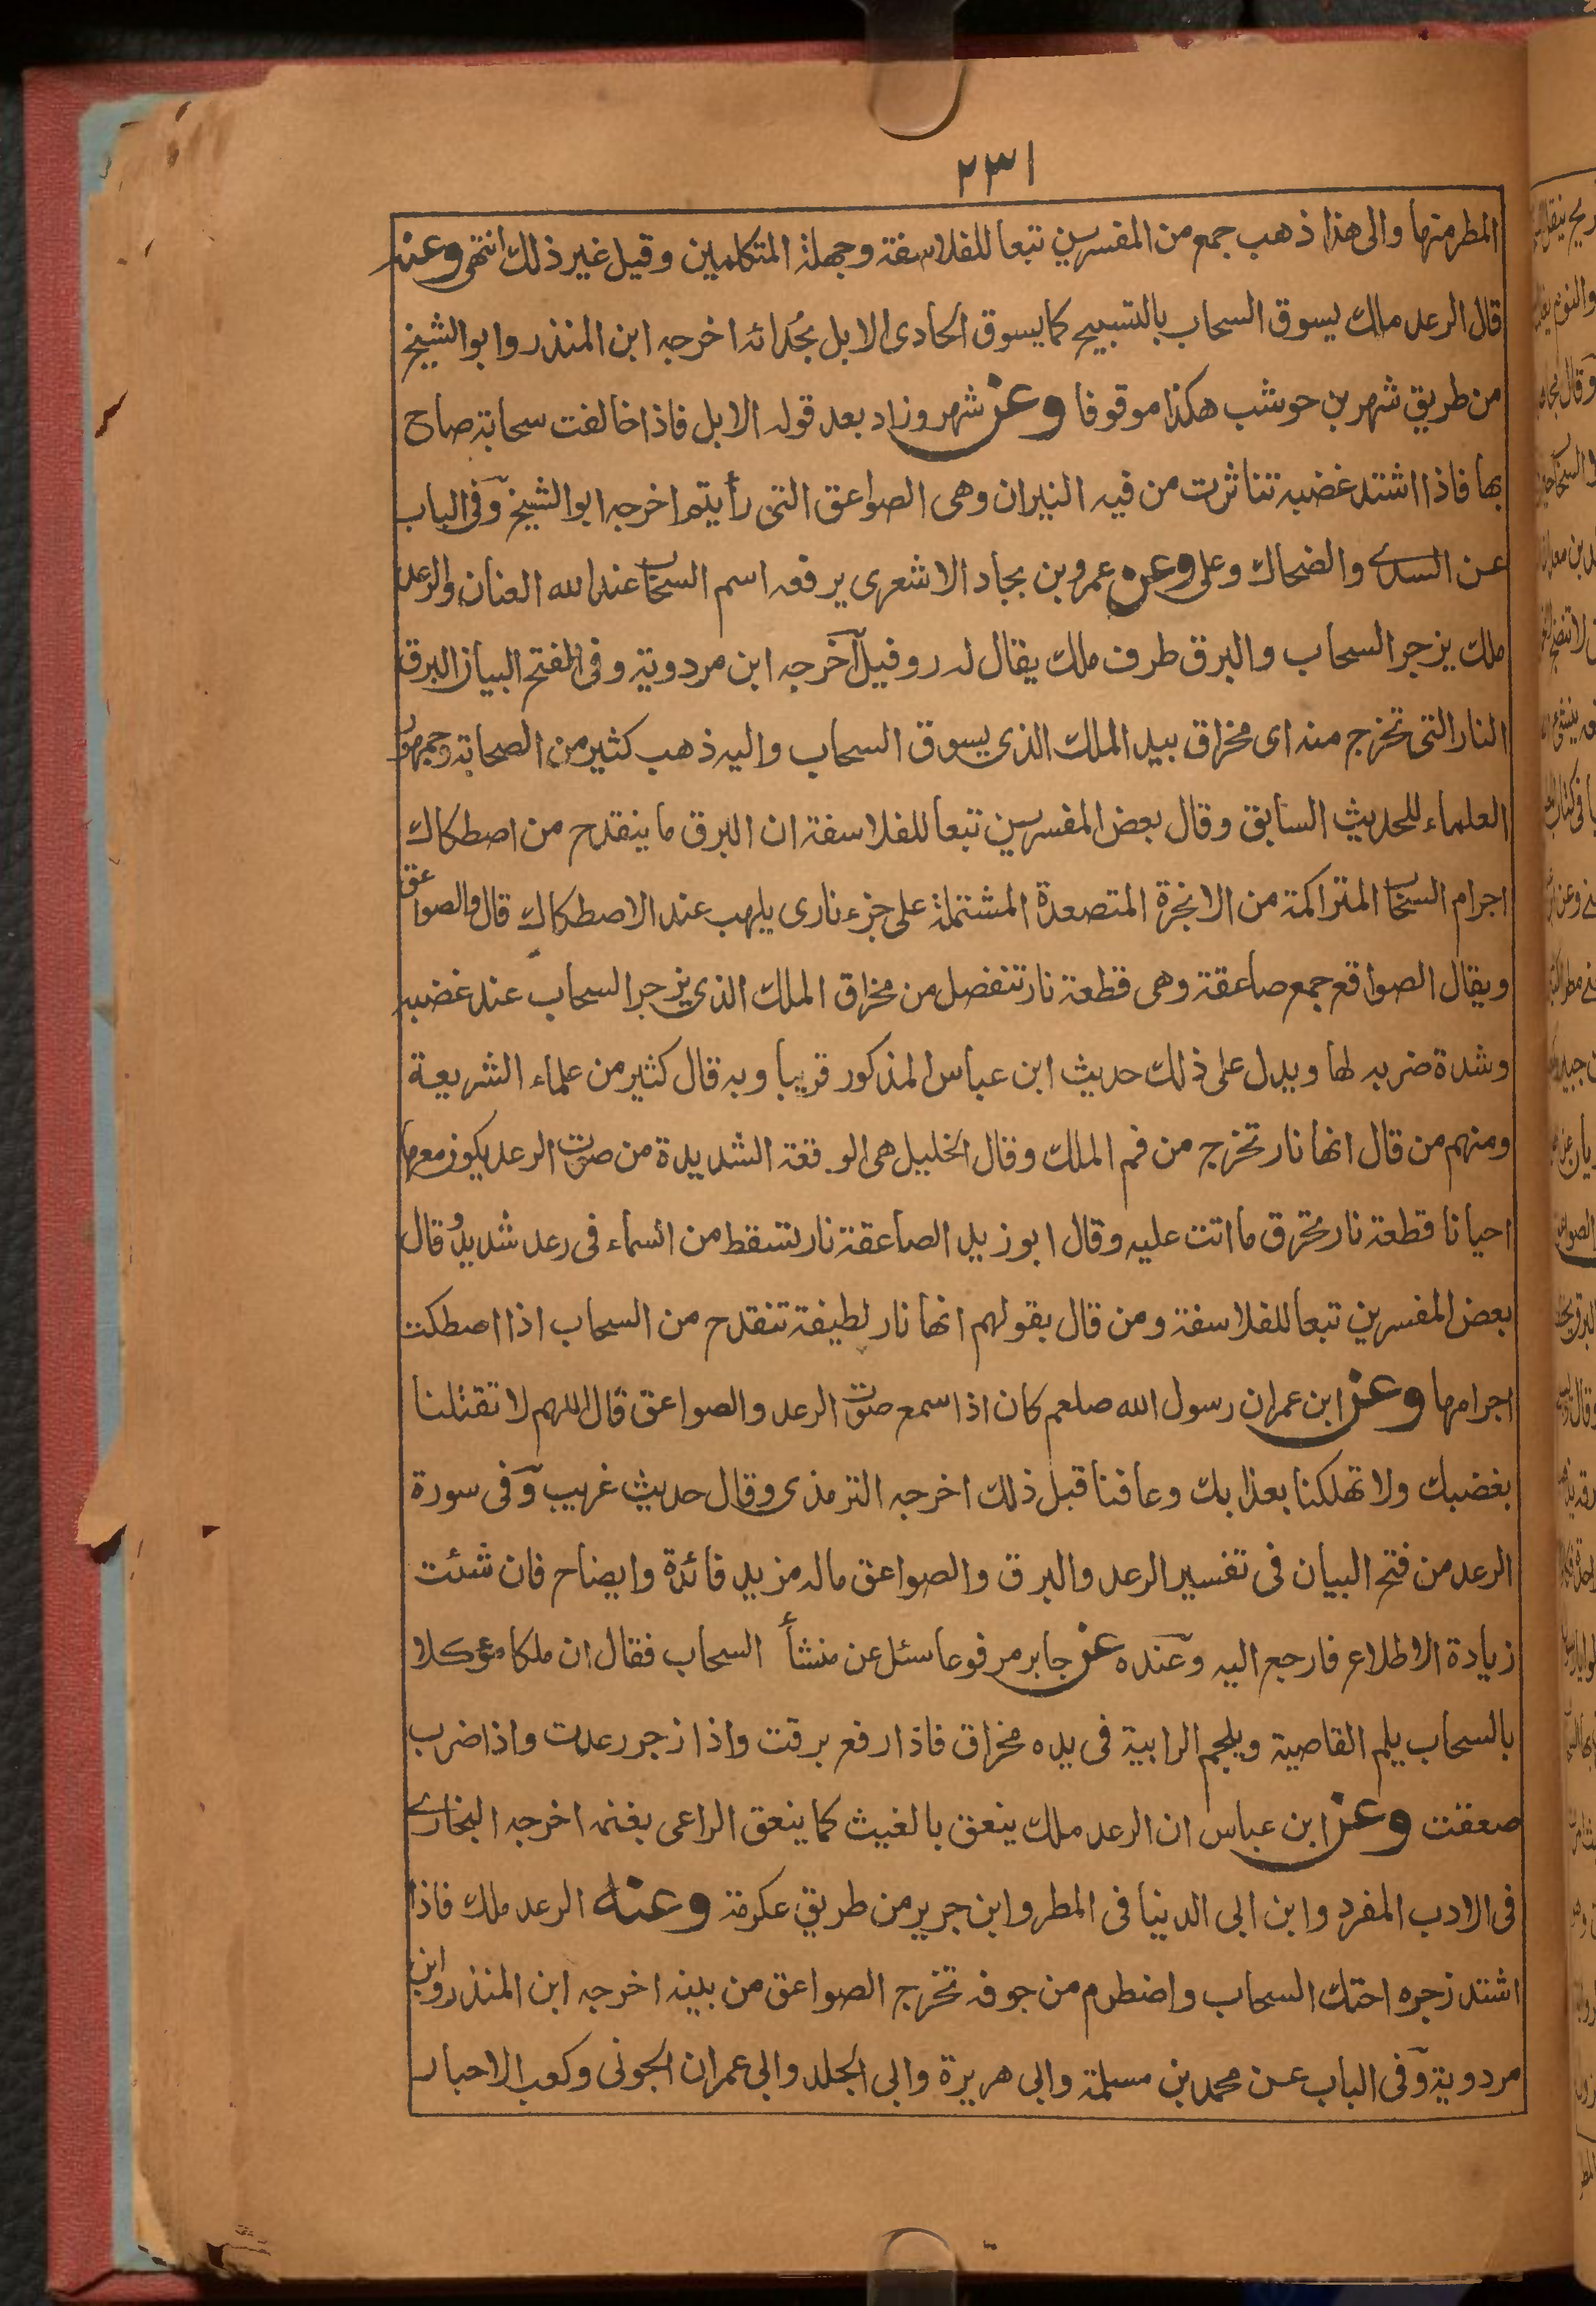 ٢٣١
المطر منها والى هذا ذهب جمع من المفسرين تبعا للفلاسفة وجهلة المتكلمين وقيل غير ذلك انتهى وعنه
قال الرعد ملك يسوق السحاب بالتسبيح كما يسوق الحادى الابل بحُدائه اخرجه ابن المنذر وابو الشيخ
من طريق شهر بن حوشب هكذا موقوفا وعن شهر وزاد بعد قوله الابل فاذا خالفت سحابة صاح
بها فاذا اشتد غضبه تناثرت من فيه النيران وهى الصواعق التى رأيتم اخرجه ابو الشيخ وفى الباب
عن السدے والضحاك وعلى وعن عمرو بن بجاد الاشعرى يرفعه اسم السحاب عند الله العنان والرعد
ملك يزجر السحاب والبرق طرف ملك يقال له روفيل آخرجه ابن مردوية وفى الفتح البيان البرق
النار التى تخرج منه اى مخراق بيد الملك الذى يسوق السحاب واليه ذهب كثير من الصحابة وجمهور
العلماء للحديث السابق وقال بعض المفسرين تبعا للفلاسفة ان البرق ما ينقدح من اصطكاك
اجرام السحاب المتراكمة من الابخرة المتصعدة المشتملة على جزء نارى يلهب عند الاصطكاك قال والصواعق
ويقال الصواقع جمع صاعقة وهى قطعة نار تنفصل من مخراق الملك الذى يزجر السحاب عند غضبه
وشدة ضربه لها ويدل على ذلك حديث ابن عباس المذكور قريبا وبه قال كثير من علماء الشريعة
ومنهم من قال انها نار تخرج من فم الملك وقال الخليل هى الوقعة الشديدة من صوت الرعد يكون معها
احيانا قطعة نار تحرق ما اتت عليه وقال ابو زيد الصاعقة نار تسقط من السماء فى رعد شديد وقال
بعض المفسرين تبعا للفلاسفة ومن قال بقولهم انها نار لطيفة تنقدح من السحاب اذا اصطكت
اجرامها وعن ابن عمر ان رسول الله صلعم كان اذا سمع صوت الرعد والصواعق قال اللهم لا تقتلنا
بغضبك ولا تهلكنا بعذابك وعافنا قبل ذلك اخرجه الترمذى وقال حديث غريب وفى سورة
الرعد من فتح البيان فى تفسير الرعد والبرق والصواعق ماله مزيد فائدة وايضاح فان شئت
زيادة الاطلاع فارجع اليه وعنده عن جابر مرفوعا سئل عن منشأ السحاب فقال ان ملكا مؤكلا
بالسحاب يلم القاصية ويلحم الرابية فى يده مخراق فاذا رفع برقت واذا زجر رعدت واذا ضرب
صعقت وعن ابن عباس ان الرعد ملك ينعق بالغيث كما ينعق الراعى بغنمه اخرجه البخارے
فى الادب المفرد وابن ابى الدينا فى المطر وابن جرير من طريق عكرمة وعنه الرعد ملك فاذا
اشتد زجره احتك السحاب واضطرم من جوفه تخرج الصواعق من بينه اخرجه ابن المنذر وابن
مردوية وفى الباب عن محمد بن مسلمة وابى هريرة وابى الجلد وابى عمران الجونى وكعب الاحبار